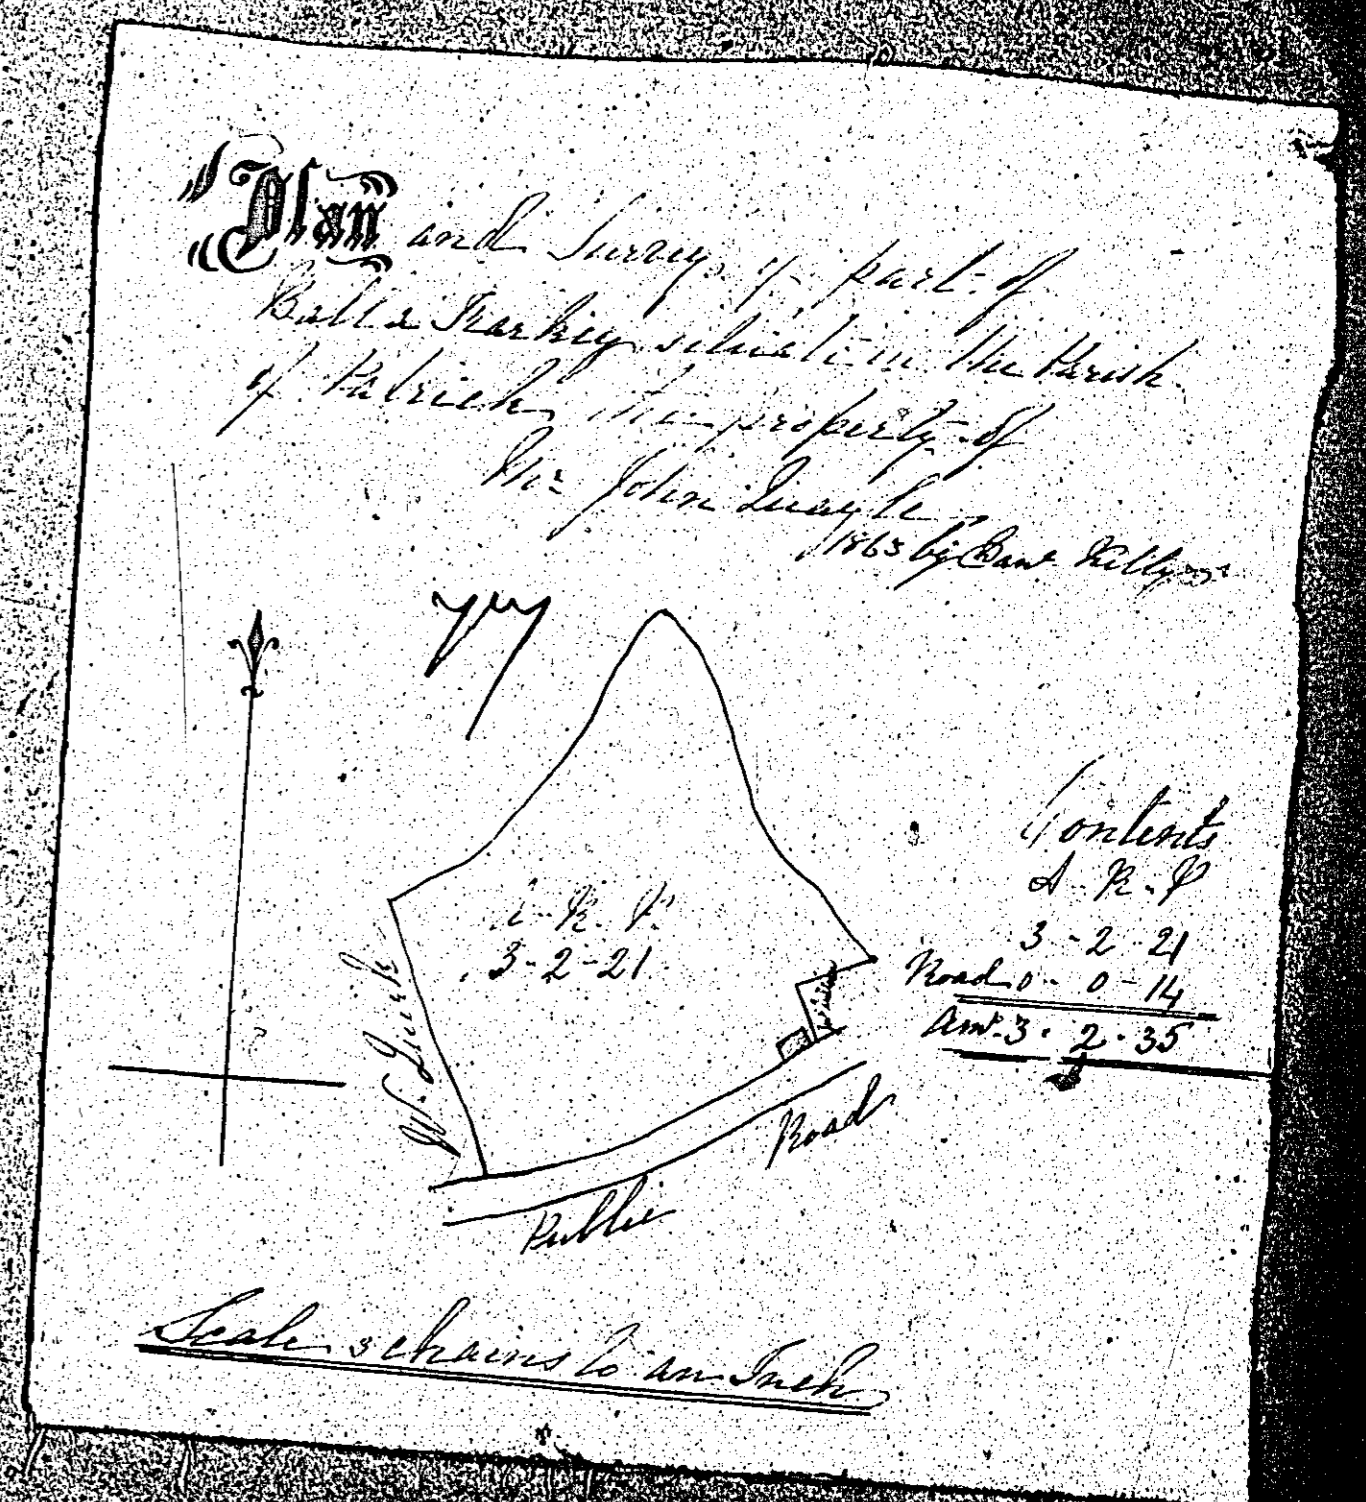 Plan and Survey of part of
Balla Sharkey situate in the Parish
of Patrick the property of
Mr John Quayle
1863 by Kelly
A - R. P.
3-2-21
W. Quirk
Public Road
Contents
A - R - P
3 - 2 - 21
Road 0 - 0 - 14
Amt 3 . 2 . 35
Scale 3 chains to an Inch